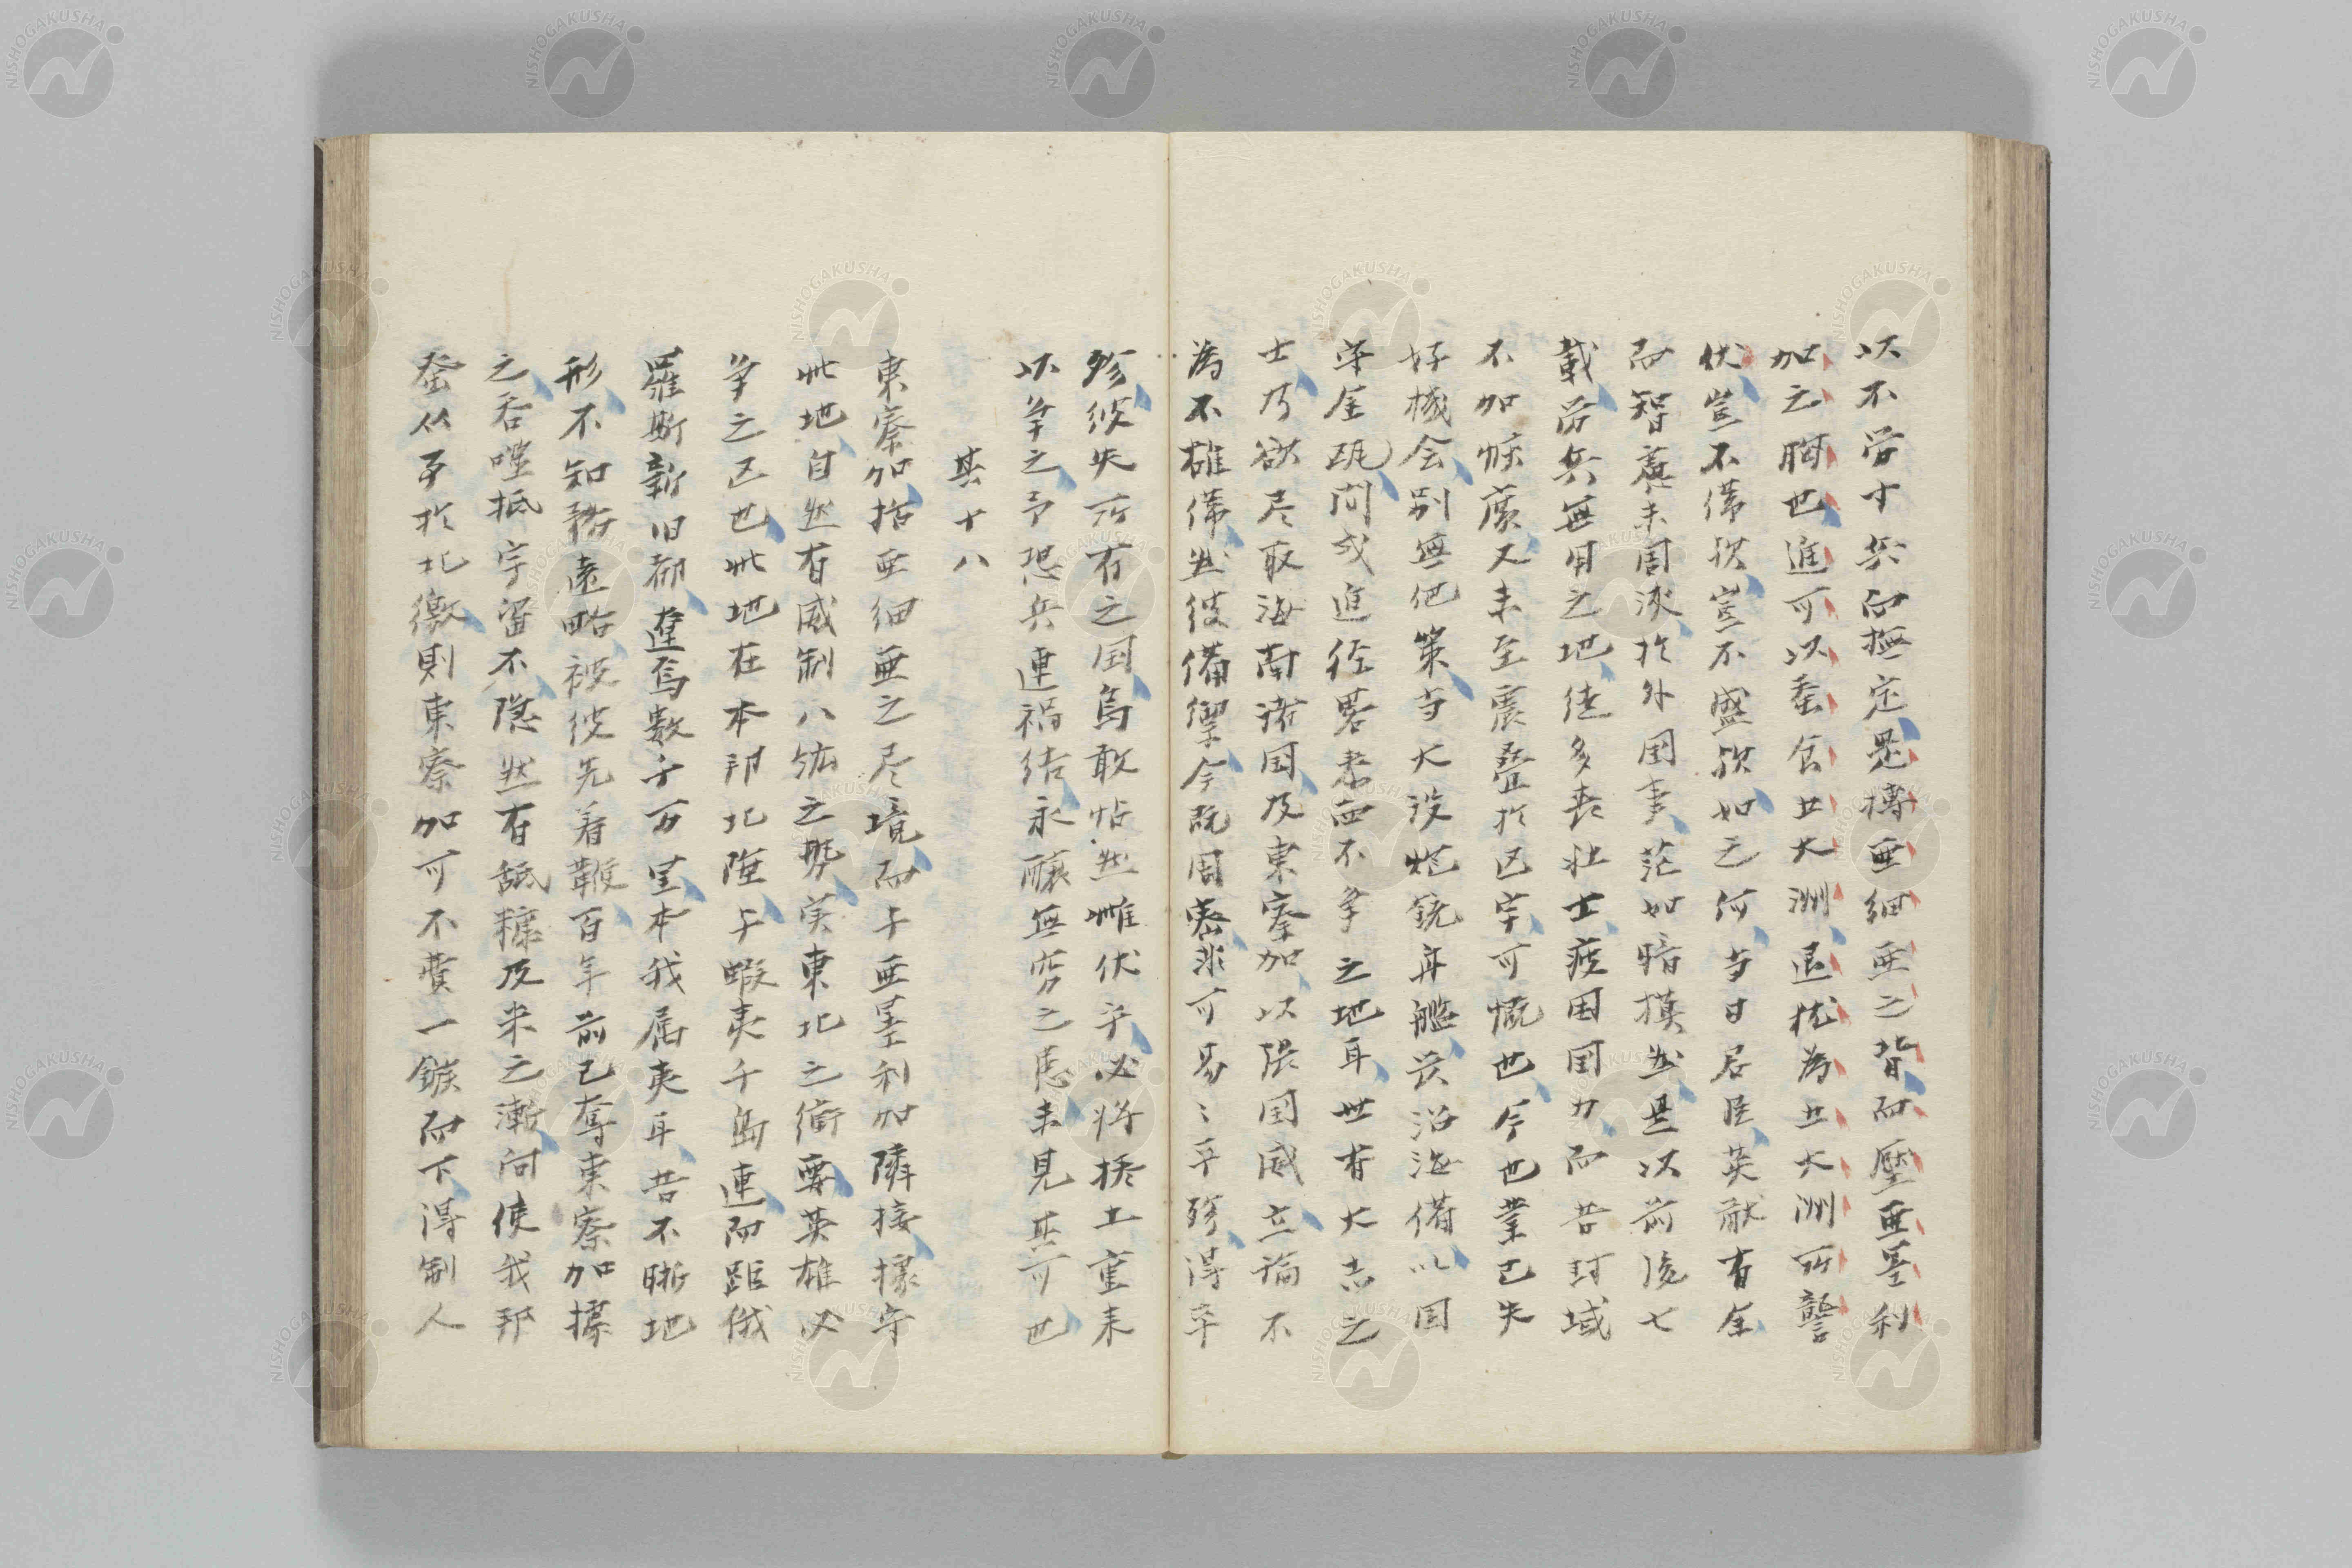 以不労寸兵而撫定是搏亜細亜之背而壓亜墨利
加之胸也進可以蚕食五大洲退猶為五大洲所讋
伏豈不偉歟豈不盛歟如之何当日君臣英猷有余
而智慮未周淡於外国事茫如暗摸然是以前後七
載労兵無用之地徒多喪壮士疲困国力而苔封域
不加恢廣又未至震疊於区宇可慨也今也業已失
好機会別無他策与大没炮銃舟艦災沿海備以固
牢金甌間或進経畧者西不争之地耳世有大志之
士乃欲尽取海南諸国及東察加以張国威立論不
為不雄偉然彼備禦今既周密非可易〻平殄得卒
殄彼失所有之国烏敢帖然惟伏乎必将捲土重来
以争之予恐兵連禍結永釀無窮之患未見其可也
其十八
東察加指亜細亜之尽境而与亜墨利加隣接據守
此地自然有威制八紘之勢実東北之衝要英雄必
争之区也此地在本邦北陲与蝦夷千島連而距俄
羅斯新旧都遼焉数千万里本我属夷耳昔不晰地
形不知務遠略被彼先着鞭百年前已奪東察加據
之呑噬抵宇畱不隠然有舐糠及米之漸向使我邦
蚤从事於北徼則東察加可不費一鏃而下得制人
NISHOGAKUSHA